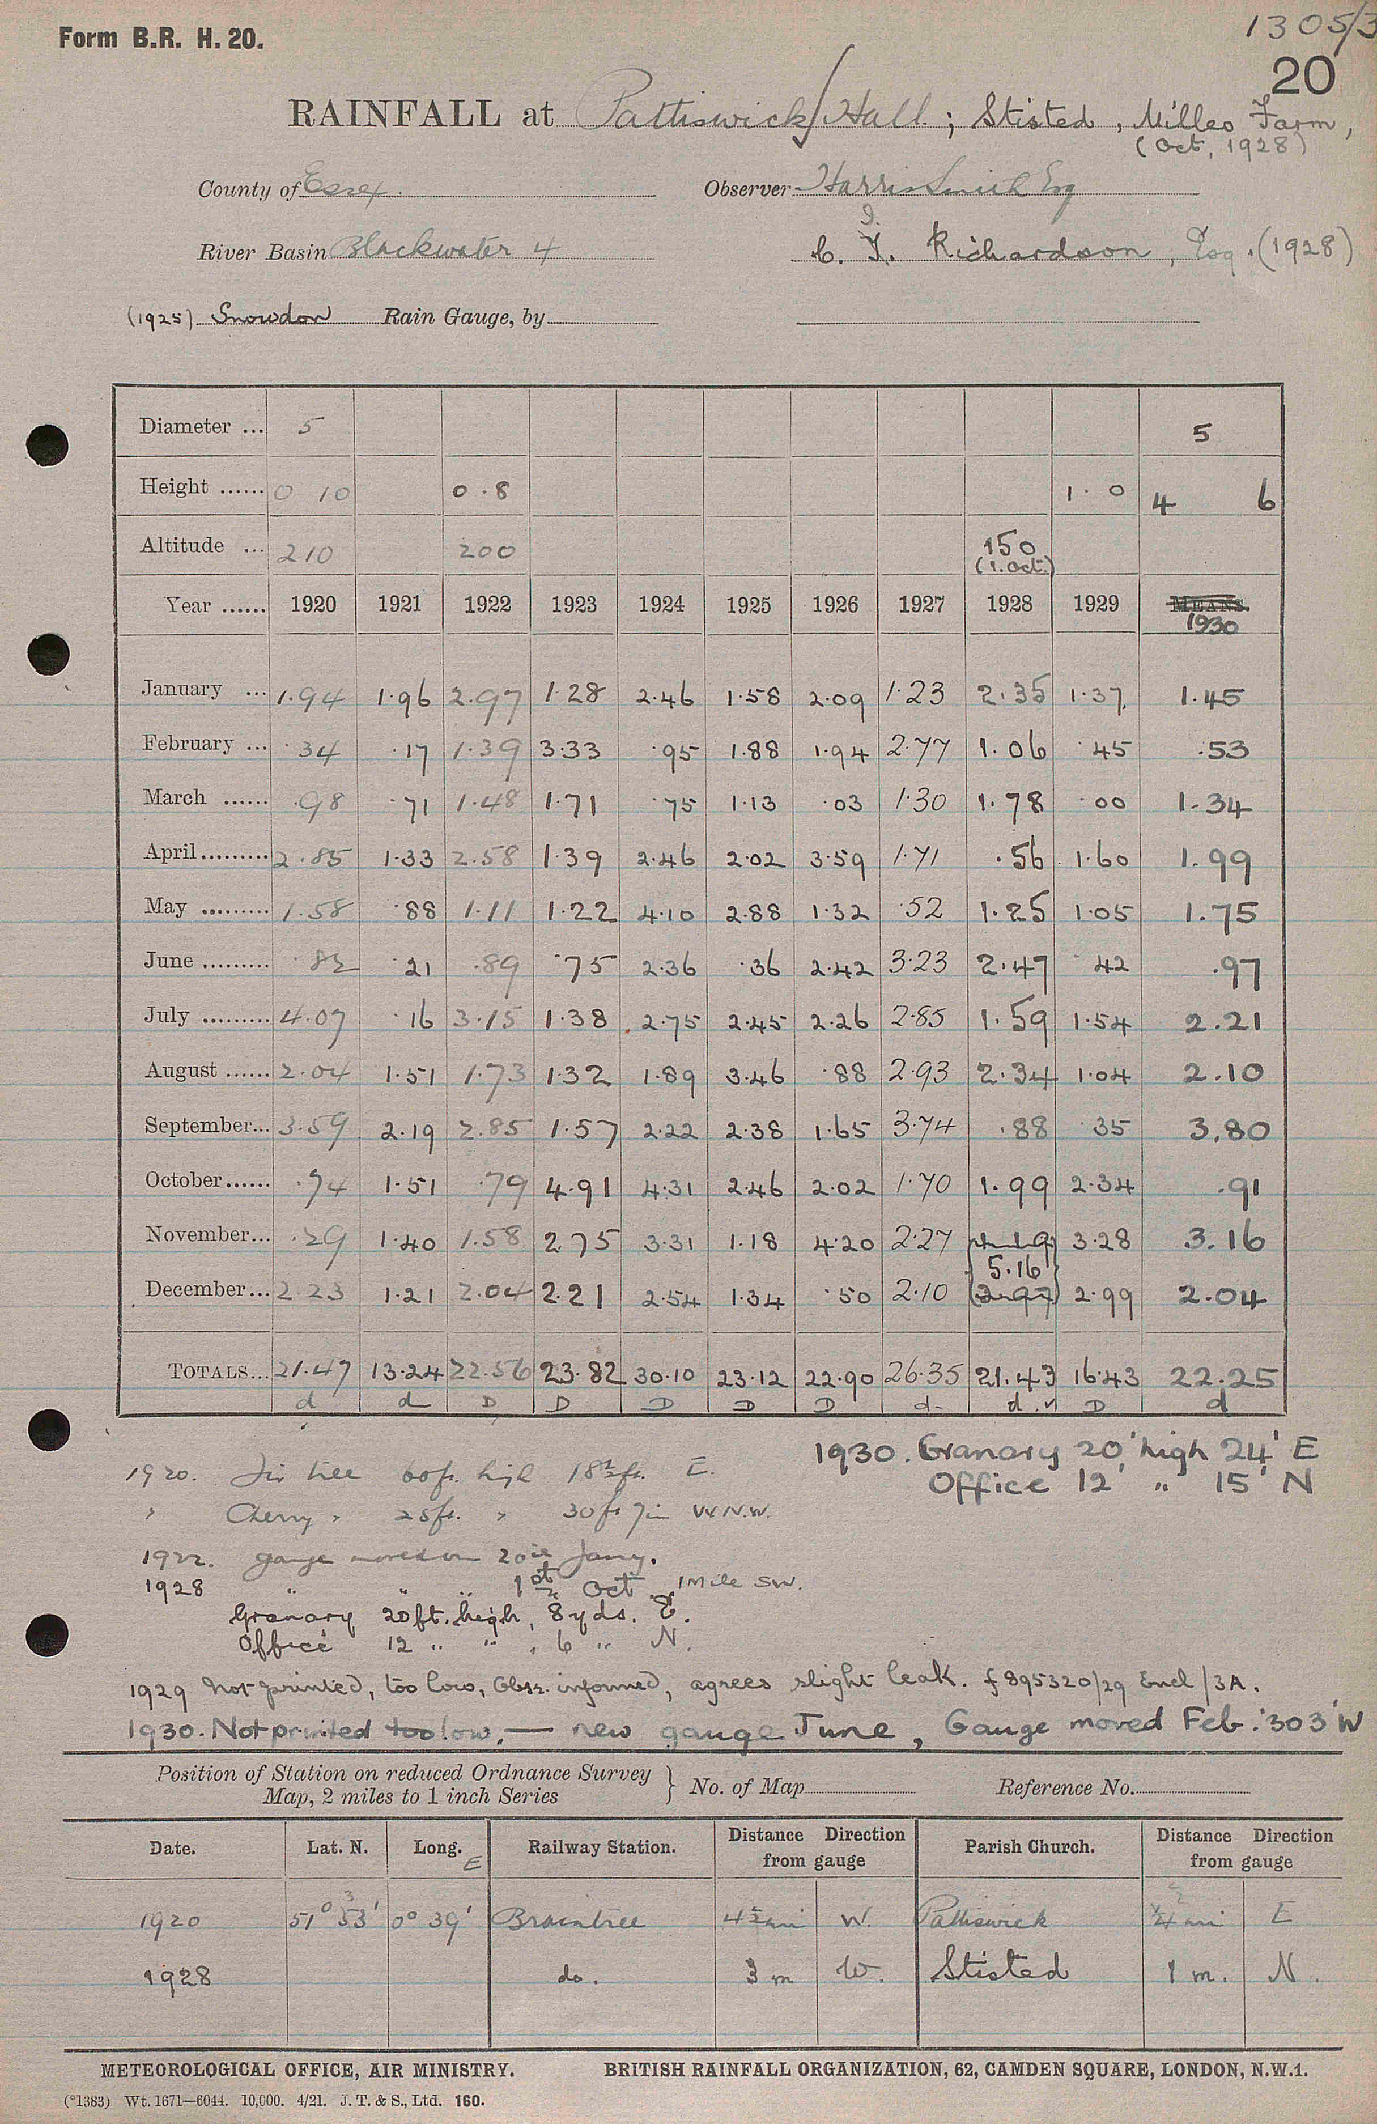 Form B.R. H. 20.
1305/3
20
RAINFALL at Pattiswick Hall; Stisted, Milles Farm,
(Oct, 1928)
County of Essex. Observer Harris Smith Esq
River Basin Blackwater 4 C. I. Richardson, Esq. (1928)
(1925) Snowdon Rain Gauge, by
Diameter ... 5 5
Height ...... 0 10 0.8 1.0 4 6
Altitude ... 210 200 150
(1.Oct.)
Year ...... 1920 1921 1922 1923 1924 1925 1926 1927 1928 1929 MEANS.
1930
January ... 1.94 1.96 2.97 1.28 2.46 1.58 2.09 1.23 2.35 1.37 1.45
February ... .34 .17 1.39 3.33 .95 1.88 1.94 2.77 1.06 .45 .53
March ...... .98 .71 1.48 1.71 .75 1.13 .03 1.30 1.78 .00 1.34
April ......... 2.85 1.33 2.58 1.39 2.46 2.02 3.59 1.71 .56 1.60 1.99
May ......... 1.58 .88 1.11 1.22 4.10 2.88 1.32 .52 1.25 1.05 1.75
June ......... .82 .21 .89 .75 2.36 .36 2.42 3.23 2.47 .42 .97
July ......... 4.07 .16 3.15 1.38 2.75 2.45 2.26 2.85 1.59 1.54 2.21
August ...... 2.04 1.51 1.73 1.32 1.89 3.46 .88 2.93 2.34 1.04 2.10
September... 3.59 2.19 2.85 1.57 2.22 2.38 1.65 3.74 .88 .35 3.80
October...... .74 1.51 .79 4.91 4.31 2.46 2.02 1.70 1.99 2.34 .91
November... .29 1.40 1.58 2.75 3.31 1.18 4.20 2.27 3.28 3.16
5.16
December... 2.23 1.21 2.04 2.21 2.54 1.34 .50 2.10 2.97 2.99 2.04
TOTALS... 21.47 13.24 22.56 23.82 30.10 23.12 22.90 26.35 21.43 16.43 22.25
d d D D D D D d d D d
1930. Granary 20' high 24' E
Office 12' " 15' N
1920. Fir tree 60ft. high 18½ft. E.
" Cherry " 25ft. " 30ft 7in W.N.W.
1922. gauge moved on 20th Jany.
1928 " " " 1st Oct 1 mile SW.
Granary 20ft. high, 8yds. E.
Office 12 " " , 6 " N.
1929 Not printed, too low, Obsr. informed, agrees slight leak. f 895320/29 Encl/3A.
1930. Not printed too low. — new gauge June, Gauge moved Feb. '30 3' W
Position of Station on reduced Ordnance Survey
Map, 2 miles to 1 inch Series } No. of Map Reference No.
Date. Lat. N. Long. E Railway Station. Distance Direction from gauge Parish Church. Distance Direction from gauge
1920 51° 53' 0° 39' Braintree W. Pattiswick E
1928 do. 3 m W. Stisted 1 m. N.
METEOROLOGICAL OFFICE, AIR MINISTRY. BRITISH RAINFALL ORGANIZATION, 62, CAMDEN SQUARE, LONDON, N.W.1.
(*1383) Wt. 1671—6044. 10,000. 4/21. J. T. & S., Ltd. 160.